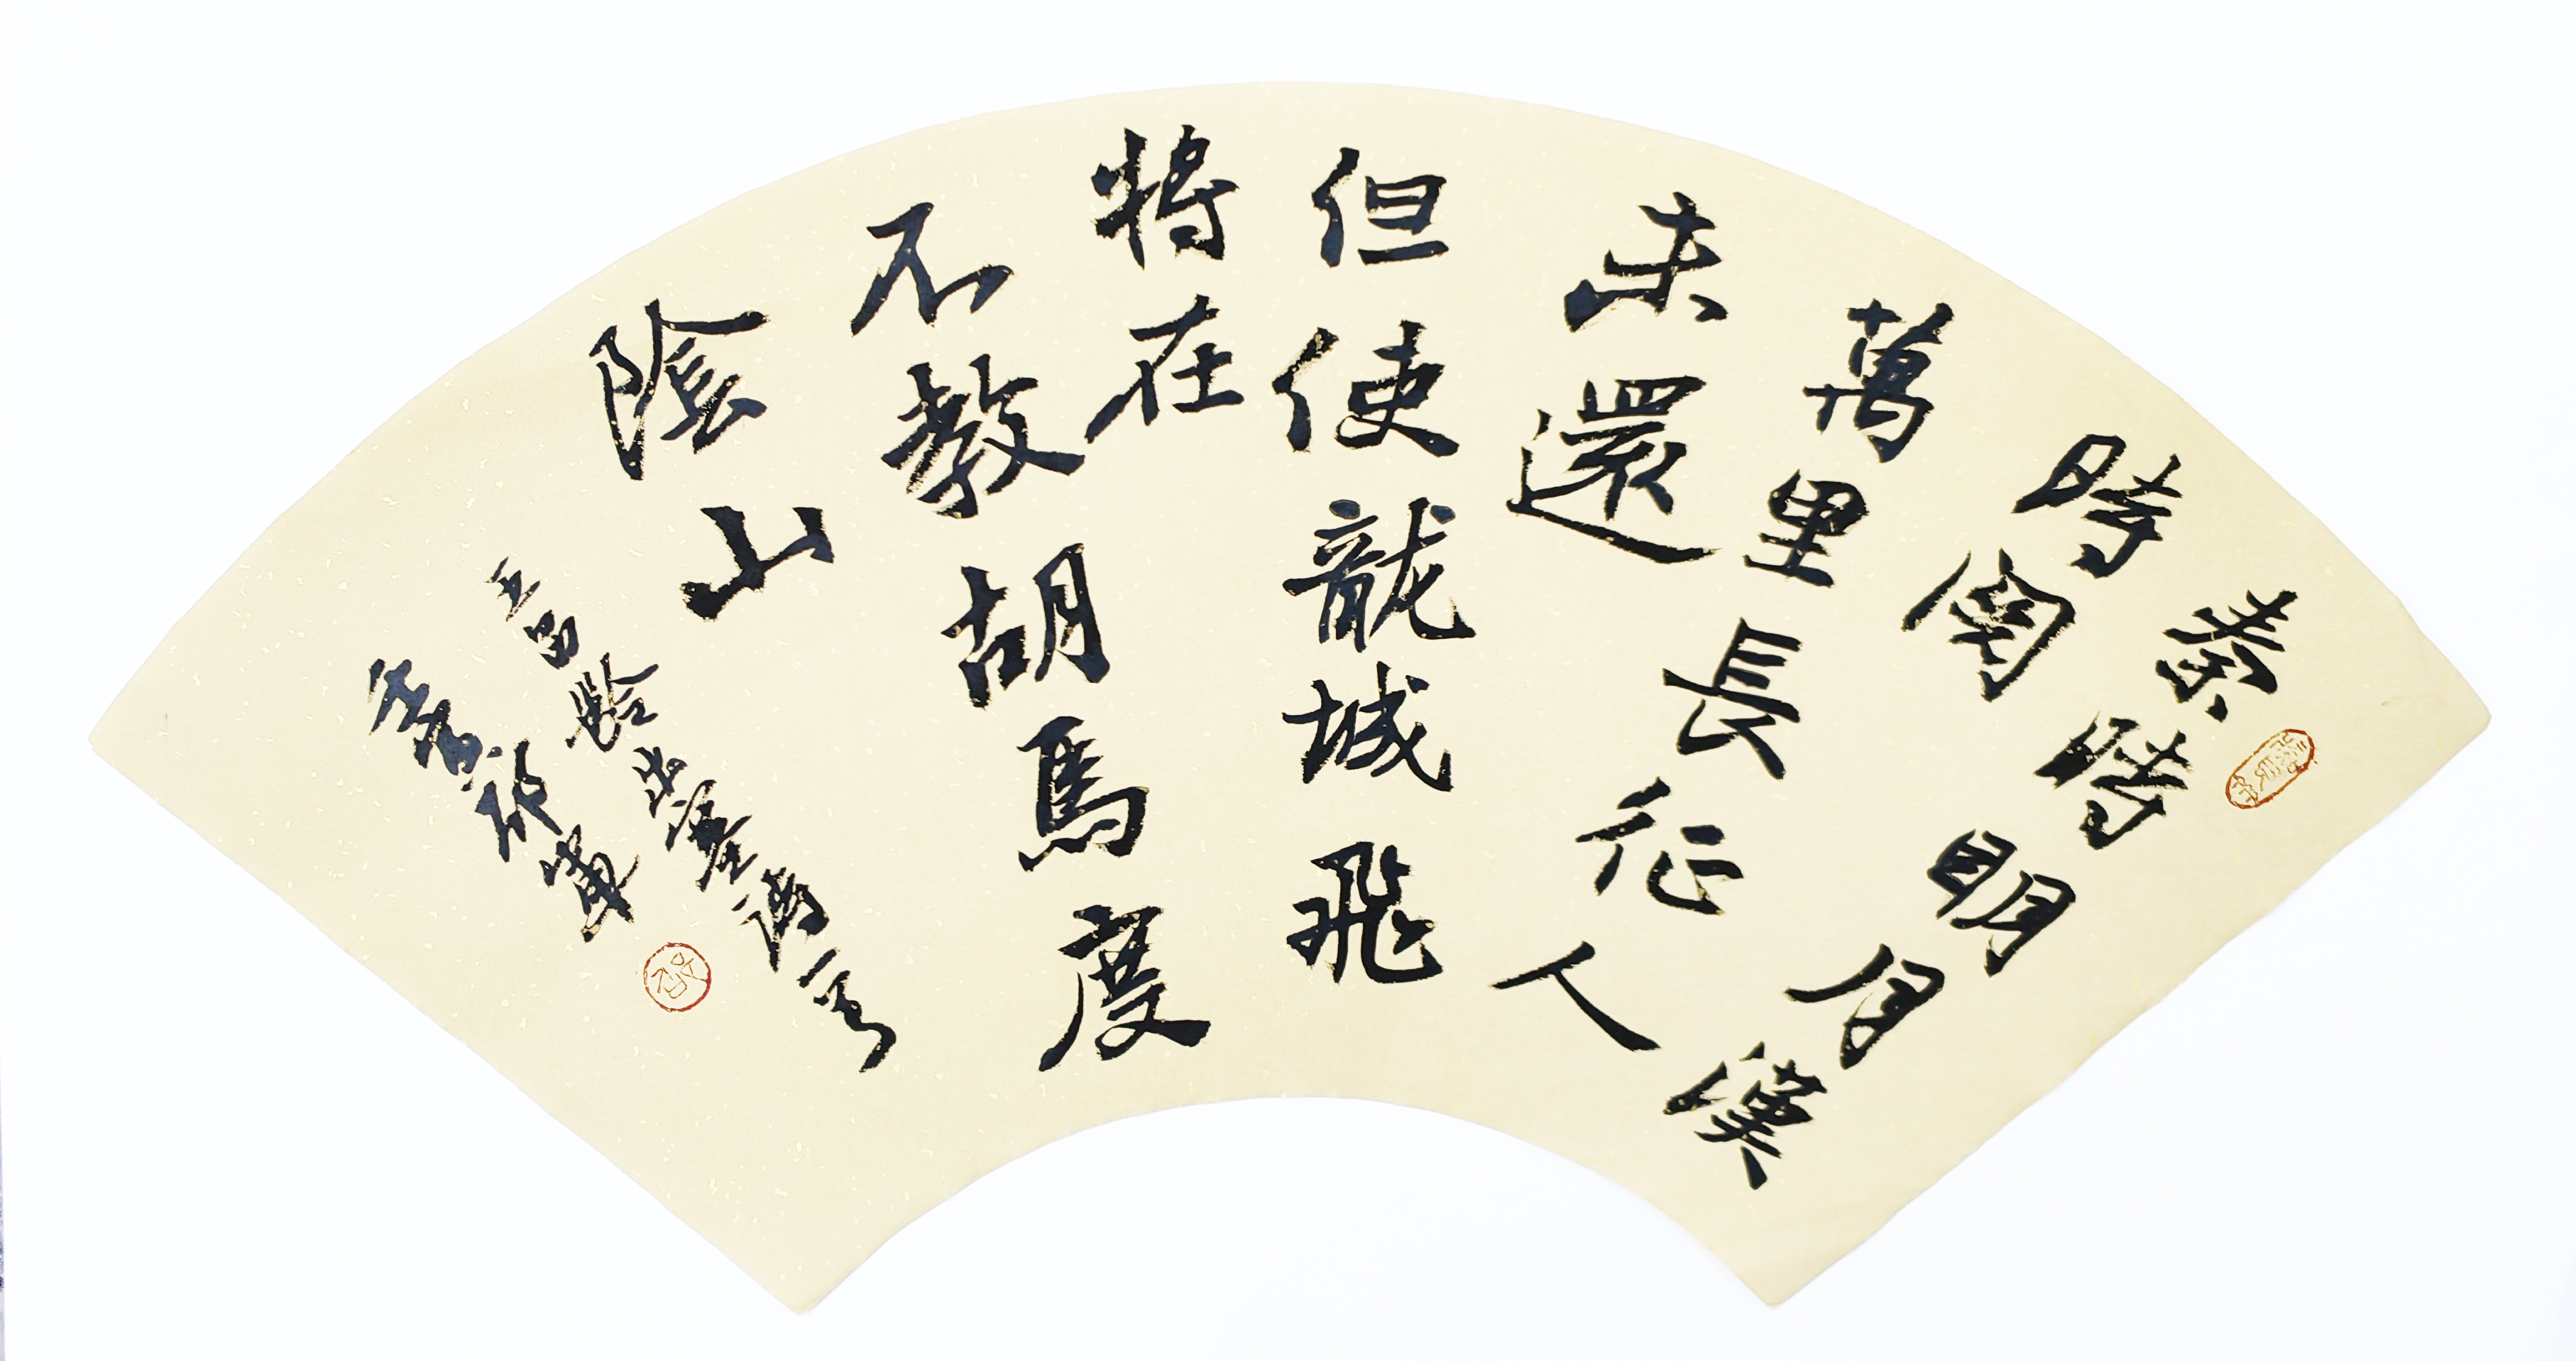 秦時明月漢
時關
萬里長征人
未還
但使龍城飛
將在
不教胡馬度
陰山
王昌齡出塞詩一首